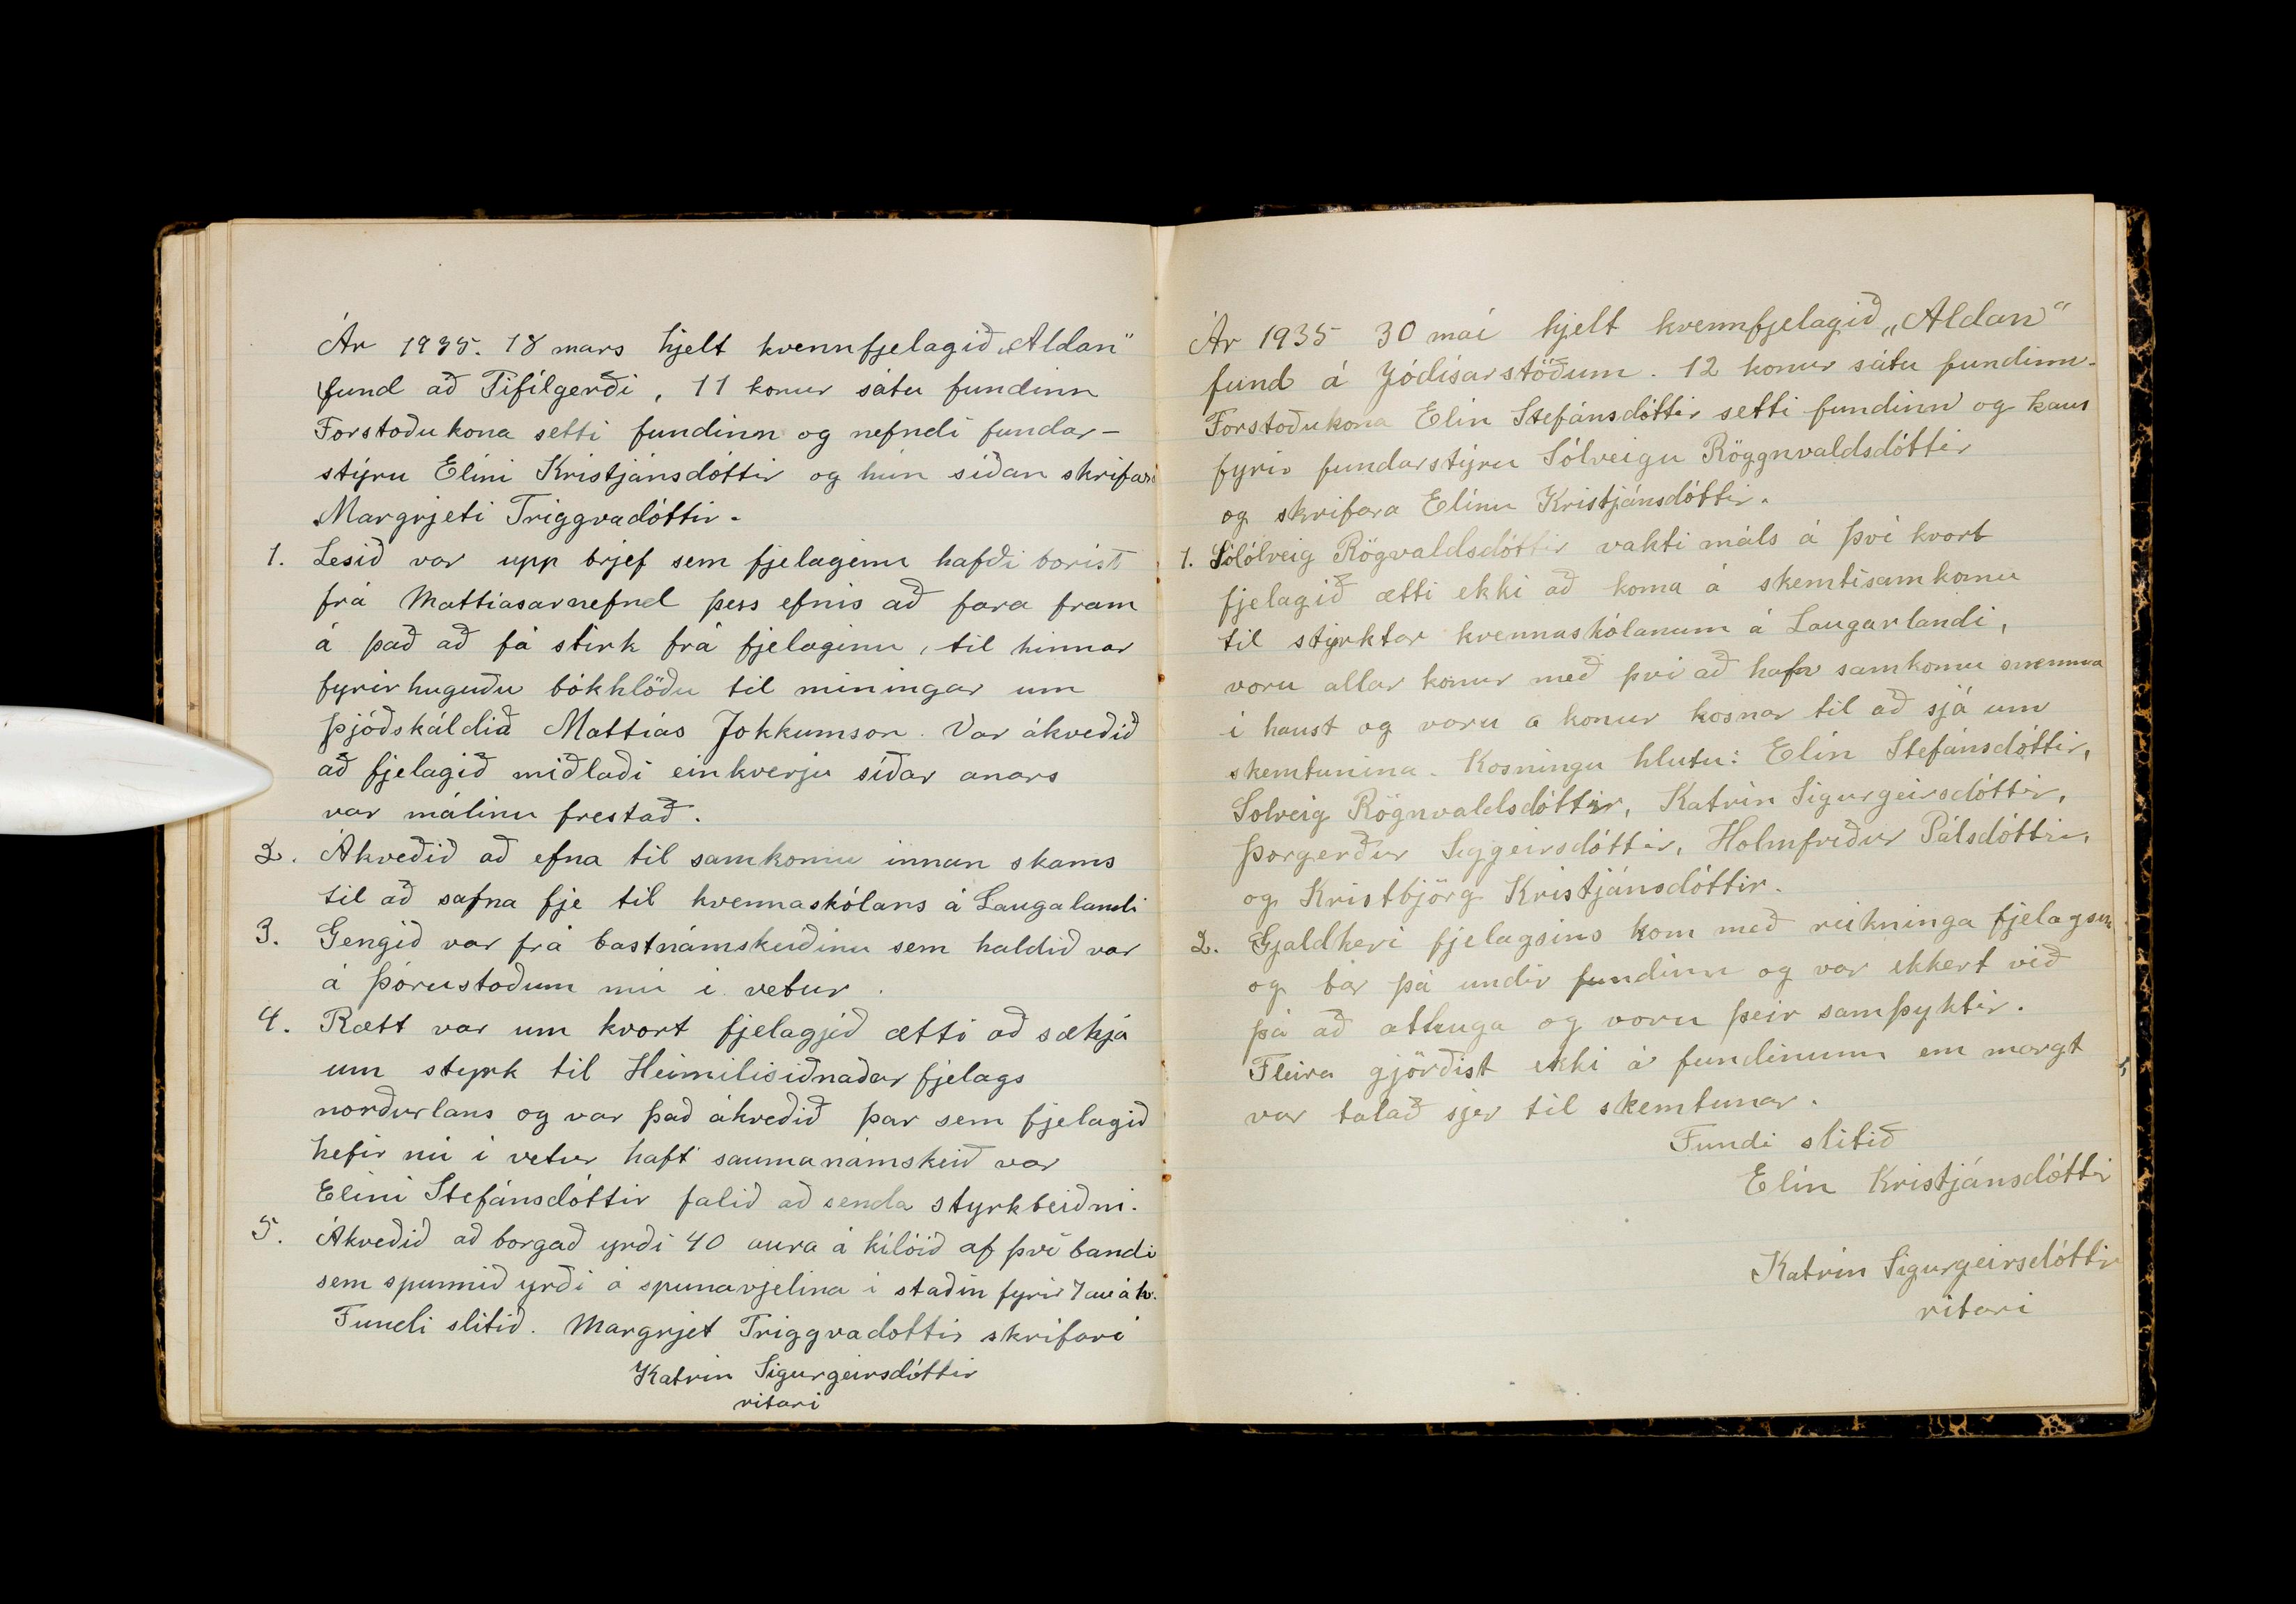 Ár 1935. 18 mars hjelt kvennfjelagið „Aldan"
fund að Tifílgerði, 11 konur sátu fundinn
Forstoðukona setti fundinn og nefndi fundar-
stýru Elíni Kristjánsdóttir og hún síðan skrifara
Margrjeti Triggvadóttir.
1. Lesið var upp brjef sem fjelaginu hafði borist
frá Mattiasarnefnd þess efnis að fara fram
á það að fá stirk frá fjelaginu, til hinnar
fyrirhuguðu bókhlöðu til miningar um
þjóðskáldið Mattías Jokkumson. Var ákveðið
að fjelagið miðlaði einkverju síðar anars
var málinu frestað.
2. Ákveðið að efna til samkomu innan skams
til að safna fje til kvennaskólans á Laugalandi
3. Gengið var frá bastnámskeiðinu sem haldið var
á Þórustoðum nú í vetur.
4. Rætt var um kvort fjelagjið ætti að sækja
um styrk til Heimilisiðnaðar fjelags
norðurlans og var það ákveðið þar sem fjelagið
hefir nú í vetur haft saumanámskeið var
Elíni Stefánsdóttir falið að senda styrkbeiðni.
5. Ákveðið að borgað yrði 40 aura á kílóið af því bandi
sem spunnið yrði á spunavjelina í staðin fyrir 7 au á
Fundi slitið. Margrjet Triggvadottir skrifari
Katrín Sigurgeirsdóttir
ritari
Ár 1935 30 maí hjelt kvennfjelagið „Aldan"
fund á Jódísarstöðum. 12 konur sátu fundinn.
Forstoðukona Elín Stefánsdóttir setti fundinn og kaus
fyrir fundarstýru Sólveigu Röggnvaldsdóttir
og skrifara Elínu Kristjánsdóttir.
1. Sólólveig Rögvaldsdóttir vakti máls á því kvort
fjelagið ætti ekki að koma á skemtisamkomu
til styrktar kvennaskólanum á Laugarlandi,
voru allar konur með því að hafa samkomu snemma
í haust og voru a konur kosnar til að sjá um
skemtunina. Kosningu hlutu: Elín Stefánsdóttir,
Solveig Rögnvaldsdóttir, Katrín Sigurgeirsdóttir,
Þorgerður Siggeirsdóttir, Holmfriður Pálsdóttir,
og Kristbjörg Kristjánsdóttir.
2. Gjaldkeri fjelagsins kom með reikninga fjelagsin
og bar þá undir fundinn og var ekkert við
þá að athuga og voru þeir samþyktir.
Fleira gjörðist ekki á fundinum en margt
var talað sjer til skemtunar.
Fundi slitið
Elín Kristjánsdóttir
Katrín Sigurgeirsdóttir
ritari